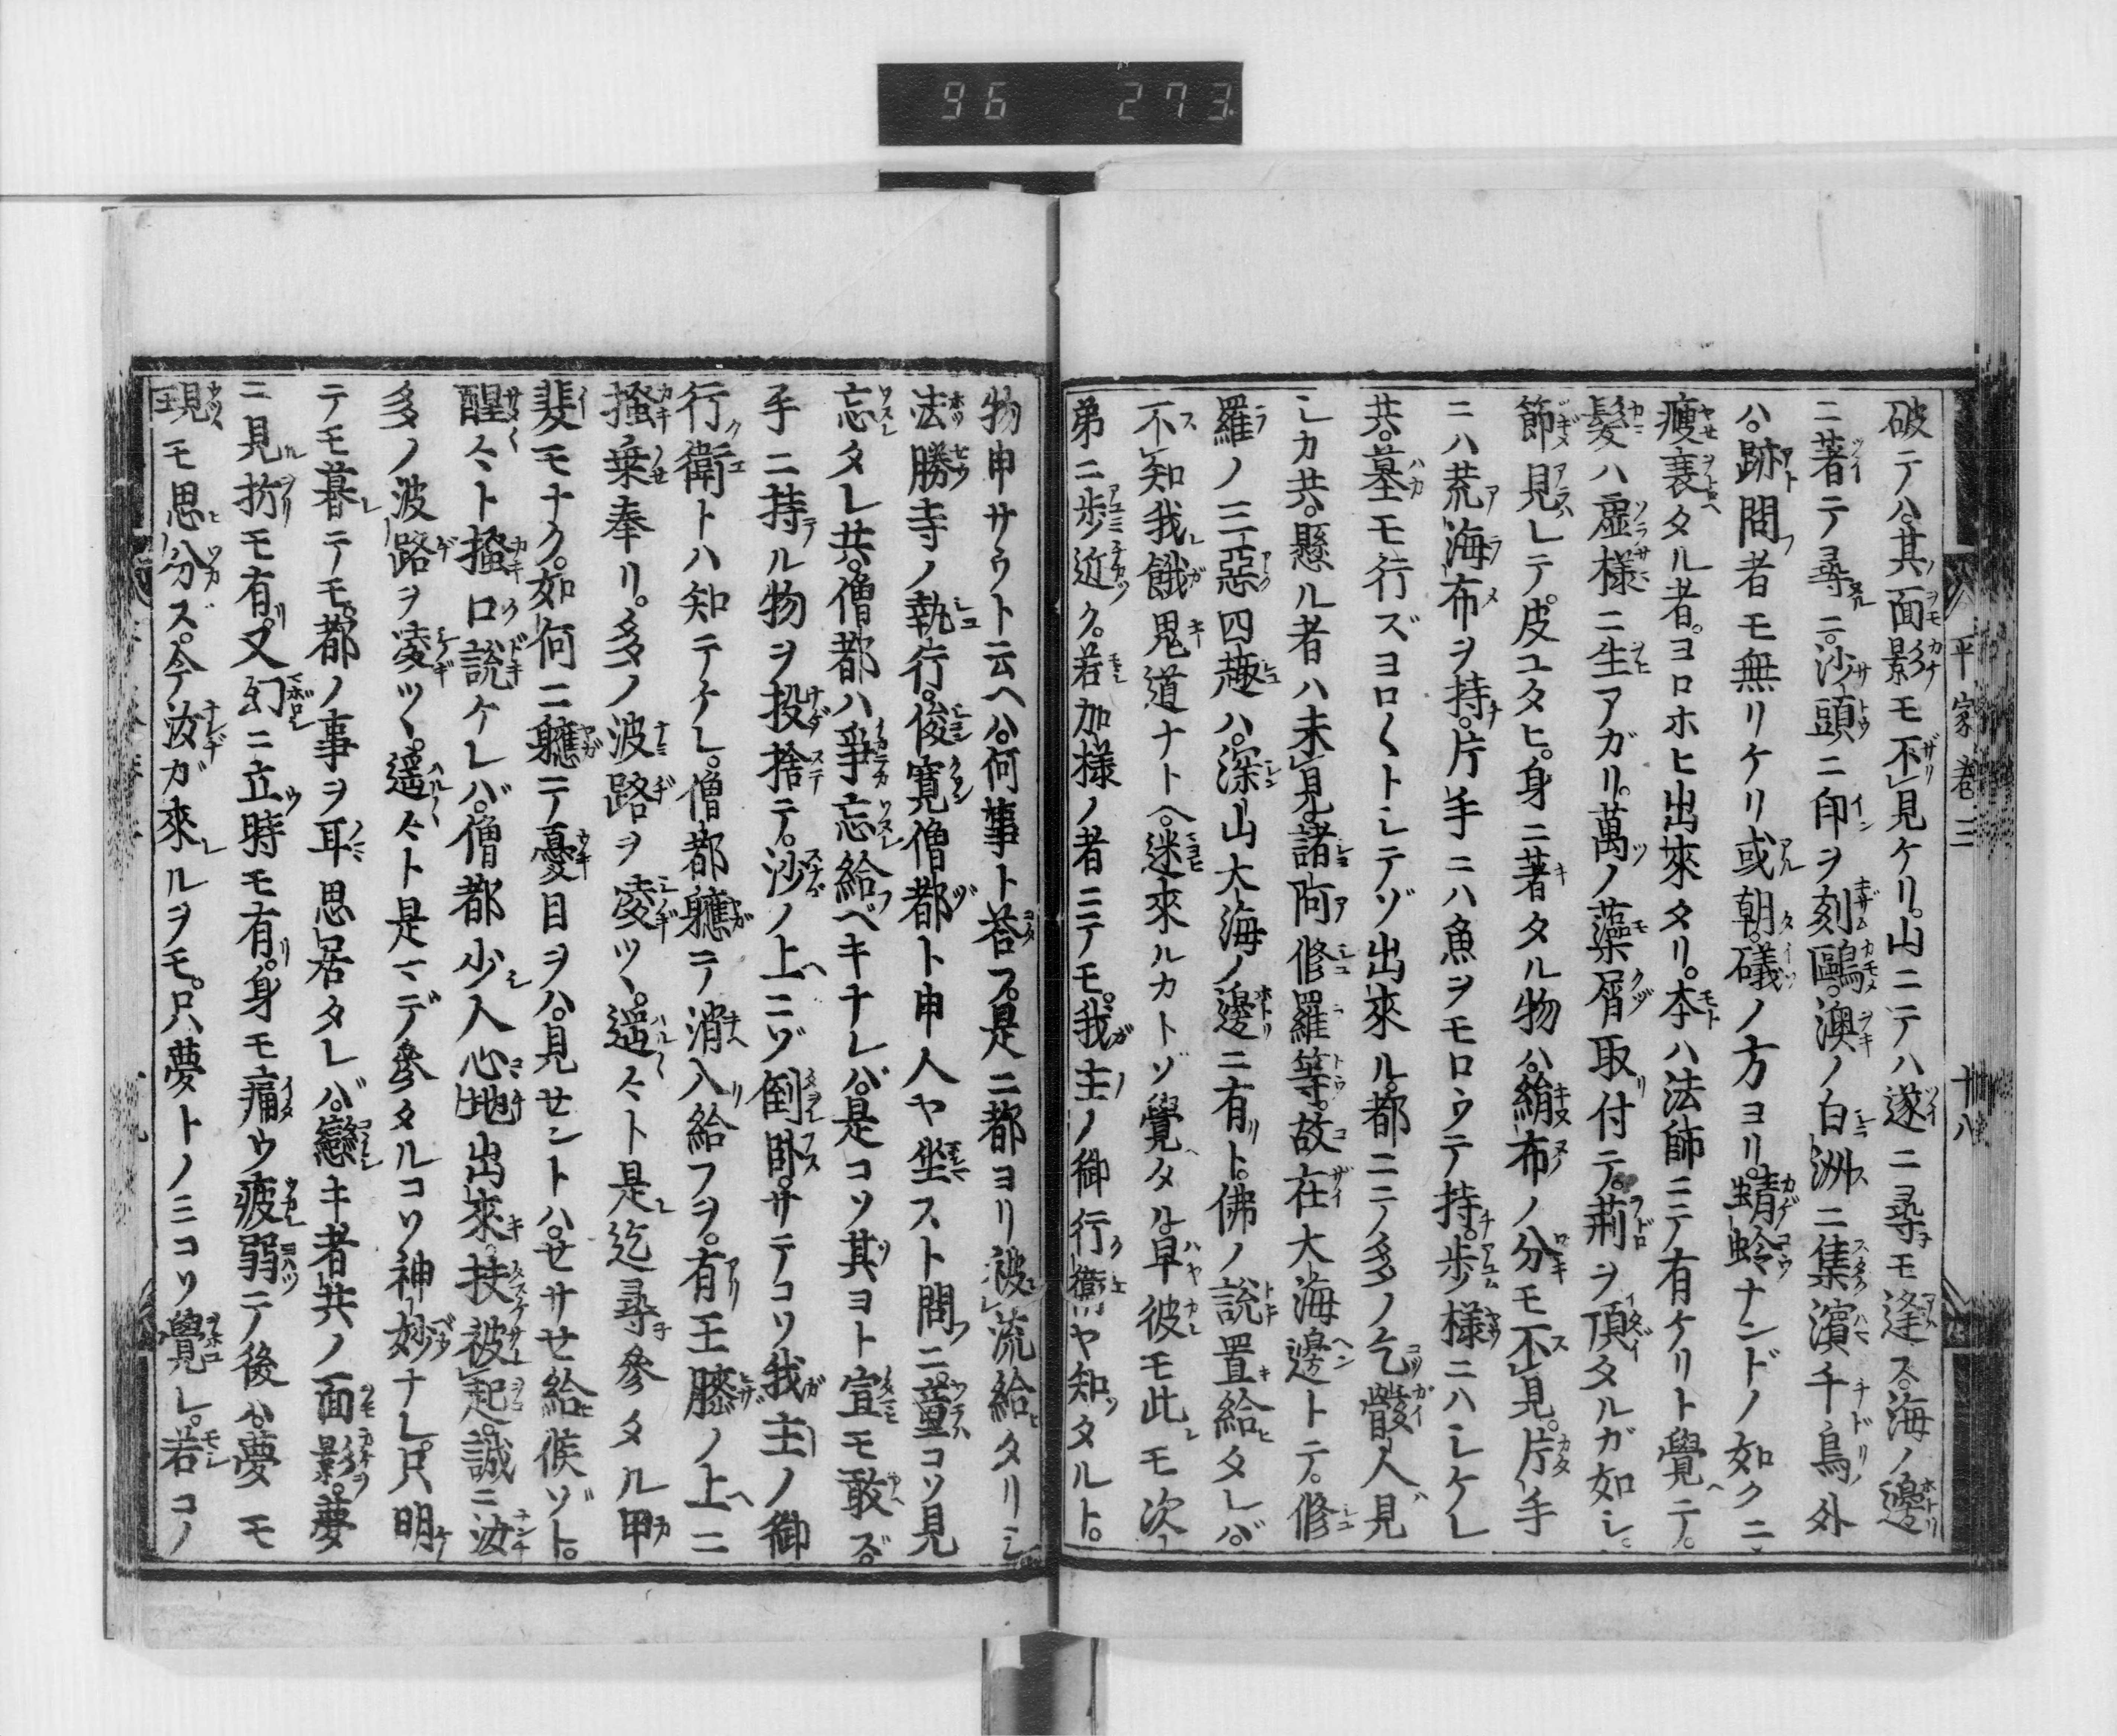 96 273
平家巻三 十八
破テハ其面影モ不見ケリ。山ニテハ遂ニ尋モ逢ス。海ノ邊
ニ著テ尋ニ。沙頭ニ印ヲ刻鷗。澳ノ白洲ニ集濱千鳥ノ外
ハ。跡問者モ無リケリ。或朝。礒ノ方ヨリ。蜻蛉ナンドノ如クニ
瘦衰タル者。ヨロホヒ出來タリ。本ハ法師ニテ有ケリト覺ヘテ。
髮ハ虛樣ニ生アガリ。萬ノ藻屑取付テ。荊ヲ頂タルガ如シ。
節見レテ。皮ユタヒ。身ニ著タル物ハ。絹布ノ分モ不見。片手
ニハ荒海布ヲ持。片手ニハ魚ヲモロウテ持。步樣ニハシケレ
共。墓モ行ズヨロ〱トシテゾ出來ル。都ニテ多ノ乞丐人見
シカ共。懸ル者ハ未見。諸阿修羅等。故在大海邊トテ。修
羅ノ三惡四趣ハ。深山大海ノ邊ニ有リト。佛ノ說置給ヒタレバ。
不知我餓鬼道ナトヘ。迷來ルカトゾ覺ヘタル。早彼モ此モ次
弟ニ步近ク。若加樣ノ者ニテモ。我主ノ御行衛ヤ知タルト。
物申サウト云ヘハ。何事ト荅フ。是ニ都ヨリ被流給ヒタリシ
法勝寺ノ執行。俊寬僧都ト申人ヤ坐スト問フニ。童コソ見
忘タレ共。僧都ハ爭忘給フベキナレバ。是コソ其ヨト宣モ敢ズ。
手ニ持テル物ヲ投捨テ。沙ノ上ニゾ倒臥。サテコソ我主ノ御
行衛トハ知テケレ。僧都軈テ消入リ給フヲ。有王膝ノ上ニ
搔乗奉リ。多ノ波路ヲ凌ツヽ。遥々ト是迄尋參タル甲
斐モナク。如何ニ軈テ憂目ヲハ。見セントハ。セサセ給ヒ候ゾト。
醒々ト搔口說ケレバ。僧都少シ人心地出來。扶被起。誠ニ汝
多ノ波路ヲ凌ツヽ。遥々ト是マデ參タルコソ神妙ナレ。只明
テモ暮テモ。都ノ事ヲ耳思居タレバ。戀キ者共ノ面影。夢
ニ見折モ有リ。又幻ニ立時モ有リ。身モ痛ウ疲弱テ後ハ。夢モ
現モ思ヒ分ズ。今汝ガ來レルヲモ。只夢トノミコソ覺レ。若コノ